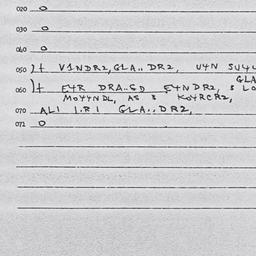 020 0
030 0
040 0
050 2t V1NDR2, GLA.. DR2, U4N SU4L
GLA
060 1t E4R DRA..GD E4NDR2, 3 LO
MO44NDL, AS 3 KO4RCR2,
070 ALI 1.R1 GLA..DR2,
071 0